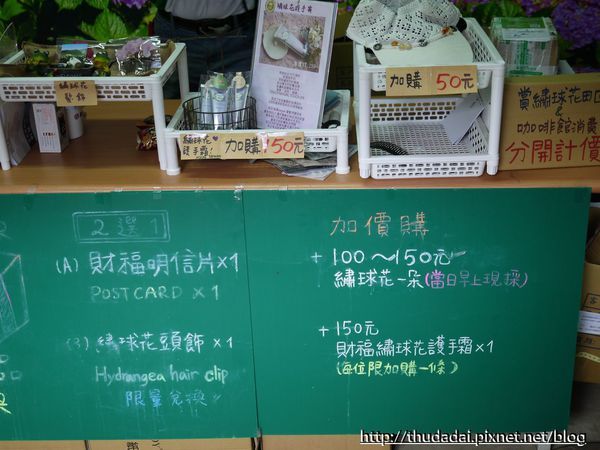 繡球花護手霜
繡球花
髮飾
繡球花
護手霜!
加購!50元
加購 50元
賞繡球花田
&
咖啡館消費
分開計價
2選1
(A) 財福明信片×1
POSTCARD ×1
(B) 繡球花頭飾 ×1
Hydrangea hair clip
限量兌換
加價購
+ 100～150元
繡球花一朵(當日早上現採)
+ 150元
財福繡球花護手霜×1
(每位限加購一條)
http://thudadai.pixnet.net/blog